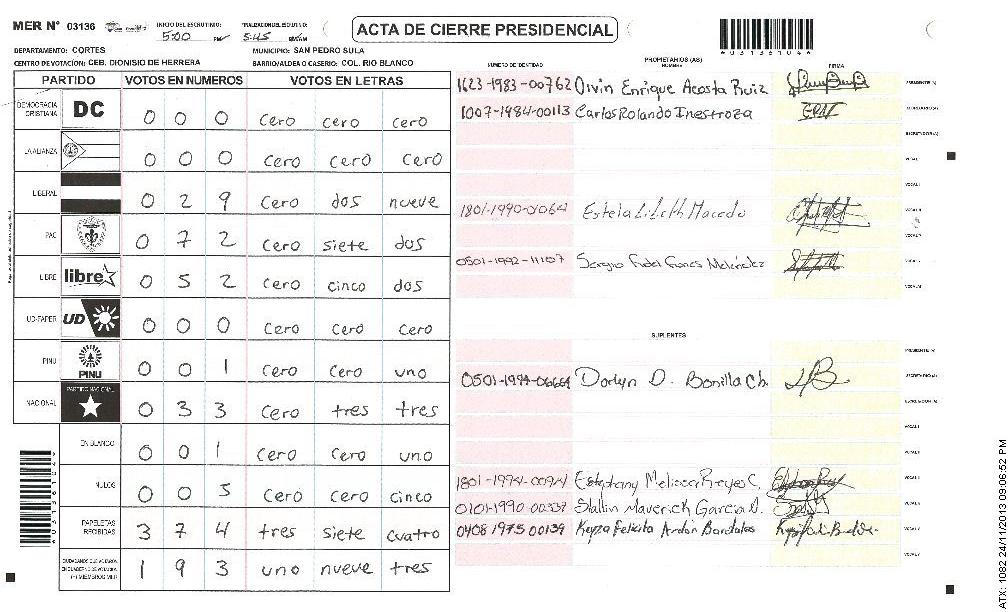 MER Nº 03136
INICIO DEL ESCRUTINIO: 5:00 PM
FINALIZACION DEL ESCRUTINIO: 5:45
ACTA DE CIERRE PRESIDENCIAL
*03136104*
DEPARTAMENTO: CORTES
MUNICIPIO: SAN PEDRO SULA
CENTRO DE VOTACIÓN: CEB. DIONISIO DE HERRERA
BARRIO/ALDEA O CASERIO: COL. RIO BLANCO
PARTIDO VOTOS EN NUMEROS VOTOS EN LETRAS
DEMOCRACIA CRISTIANA DC 0 0 0 Cero cero cero
LA ALIANZA 0 0 0 Cero cero cero
LIBERAL 0 2 9 Cero dos nueve
PAC 0 7 2 Cero siete dos
LIBRE libre 0 5 2 Cero cinco dos
UD-FAPER UD 0 0 0 Cero Cero cero
PINU PINU 0 0 1 Cero Cero uno
NACIONAL PARTIDO NACIONAL 0 3 3 Cero tres tres
EN BLANCO 0 0 1 Cero Cero uno
NULOS 0 0 5 Cero Cero cinco
PAPELETAS RECIBIDAS 3 7 4 tres siete cuatro
CIUDADANOS QUE VOTARON EN CUADERNO DE VOTACION (+) MIEMBROS MER 1 9 3 uno nueve tres
PROPIETARIOS (AS)
NUMERO DE IDENTIDAD NOMBRE FIRMA
1623-1983-00762 Divin Enrique Acosta Ruiz PRESIDENTE (A)
1007-1984-00113 Carlos Rolando Inestroza SECRETARIO (A)
ESCRUTADOR (A)
VOCAL I
1801-1990-01064 Estela Lizeth Macedo
0501-1992-11107 Sergio Fidel Funes Meléndez
SUPLENTES
PRESIDENTE (A)
0501-1994-06664 Dorlyn D. Bonilla Ch. SECRETARIO (A)
ESCRUTADOR (A)
VOCAL I
1801-1994-00974 Estephany Melissa Reyes C.
0101-1990-00537 Stallin Maverick Garcia
0408 1975 00139 Keyza Felicita Andón
ATX: 1082 24/11/2013 09:06:52 PM